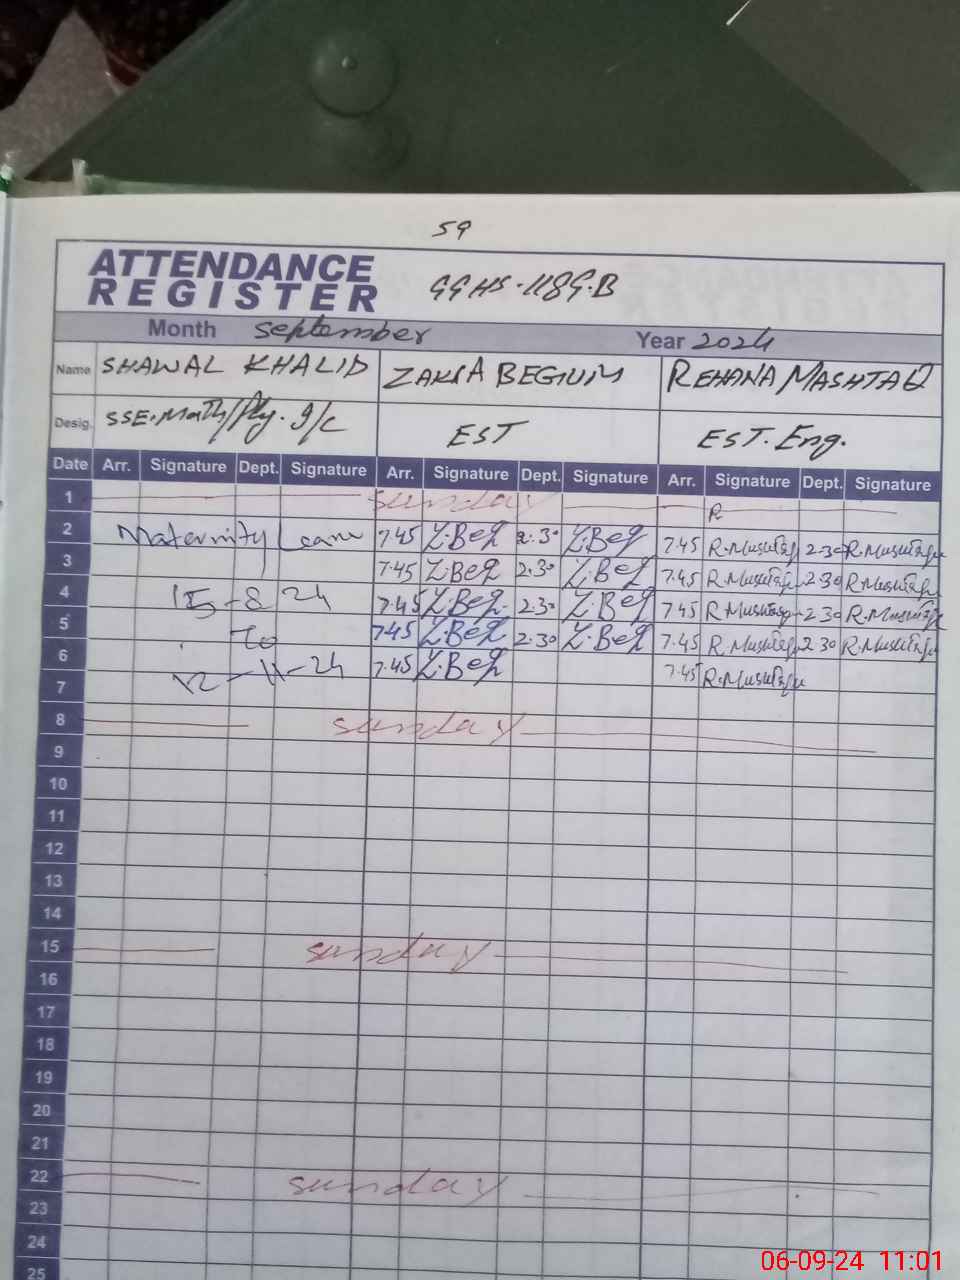 59
ATTENDANCE
REGISTER
GGHS-118G.B
Month September Year 2024
Name SHAWAL KHALID ZAKIA BEGIUM REHANA MASHTAQ
Desig. SSE.Math/Phy. I/C EST EST.Eng.
Date Arr. Signature Dept. Signature Arr. Signature Dept. Signature Arr. Signature Dept. Signature
1 sunday R
2 Maternity Leave 7.45 Z.Beg 2.30 Z.Beg 7.45 R.Mushtaq 2.30 R.Mushtaq
3 7.45 Z.Beg 2.30 Z.Beg 7.45 R.Mushtaq 2.30 R.Mushtaq
4 15-8-24 7.45 Z.Beg 2.30 Z.Beg 7.45 R.Mushtaq 2.30 R.Mushtaq
5 To 7.45 Z.Beg 2.30 Z.Beg 7.45 R.Mushtaq 2.30 R.Mushtaq
6 12-11-24 7.45 Z.Beg 7.45 R.Mushtaq
7
8 sunday
9
10
11
12
13
14
15 sunday
16
17
18
19
20
21
22 sunday
23
24
25
06-09-24 11:01